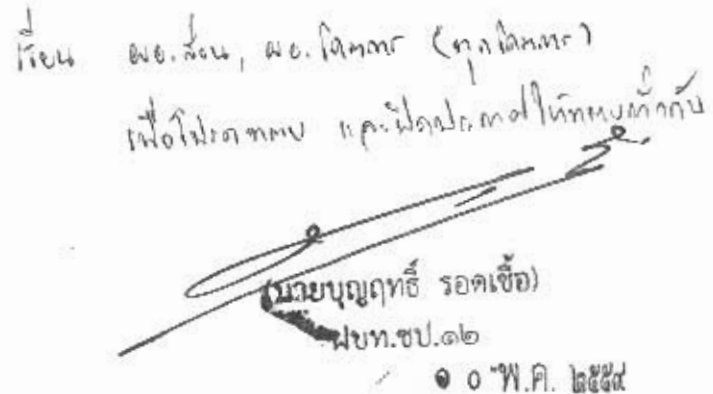 เรียน ผอ.ส่วน, ผอ.โครงการ (ทุกโครงการ)
เพื่อโปรดทราบ และปิดประกาศให้ทราบทั่วกัน
(นายบุญฤทธิ์ รอดเชื้อ)
ฝบท.ชป.๑๒
๑๐ พ.ค. ๒๕๕๙